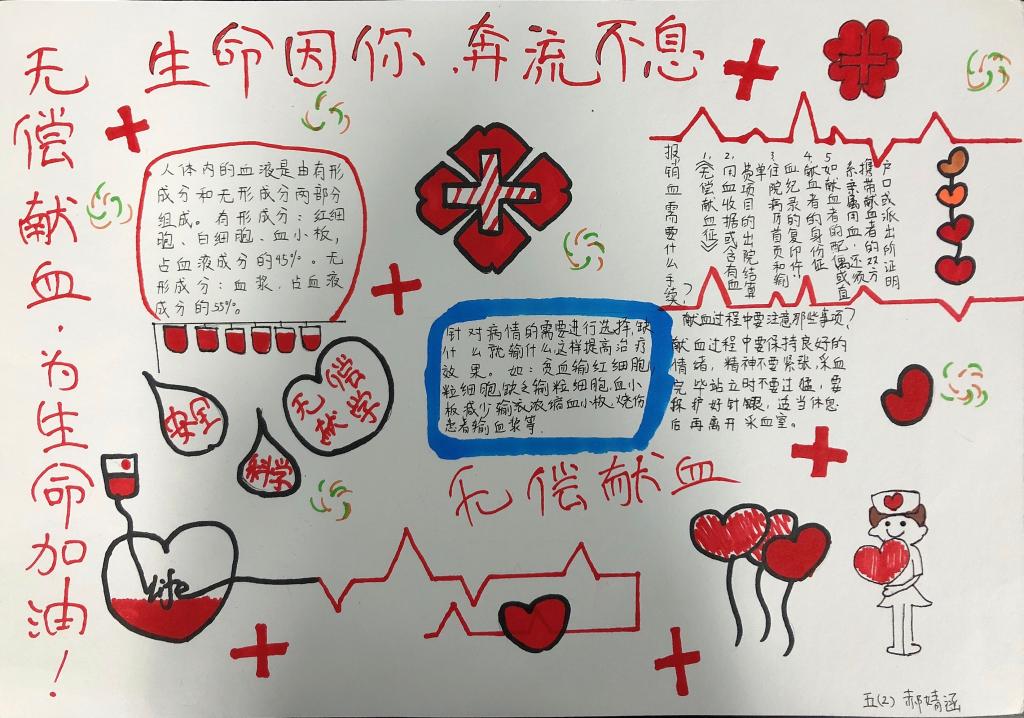 生命因你.奔流不息
无偿献血.为生命加油!
人体内的血液是由有形
成分和无形成分两部分
组成。有形成分:红细
胞、白细胞、血小板,
占血液成分的45%。无
形成分:血浆,占血液
成分的55%。
报销血需要什么手续?
1.《无偿献血证》
2.用血收据或含有血
费项目的出院结算
单
3.住院病历首页和输
血纪录的复印件.
4.献血者的身份证
5.如献血者的配偶或直
系亲属用血,还须
携带献血者的双方
户口或派出所证明
针对病情的需要进行选择,缺
什么就输什么这样提高治疗
效果。如:贫血输红细胞
粒细胞缺乏输粒细胞,血小
板减少输浓缩血小板,烧伤
患者输血浆等.
献血过程中要注意那些事项?
献血过程中要保持良好的
情绪,精神不要紧张,采血
完毕站立时不要过猛,要
保护好针眼,适当休息
后再离开采血室。
安全
科学
无偿
献学
无偿献血
life
五(2) 郝婧涵